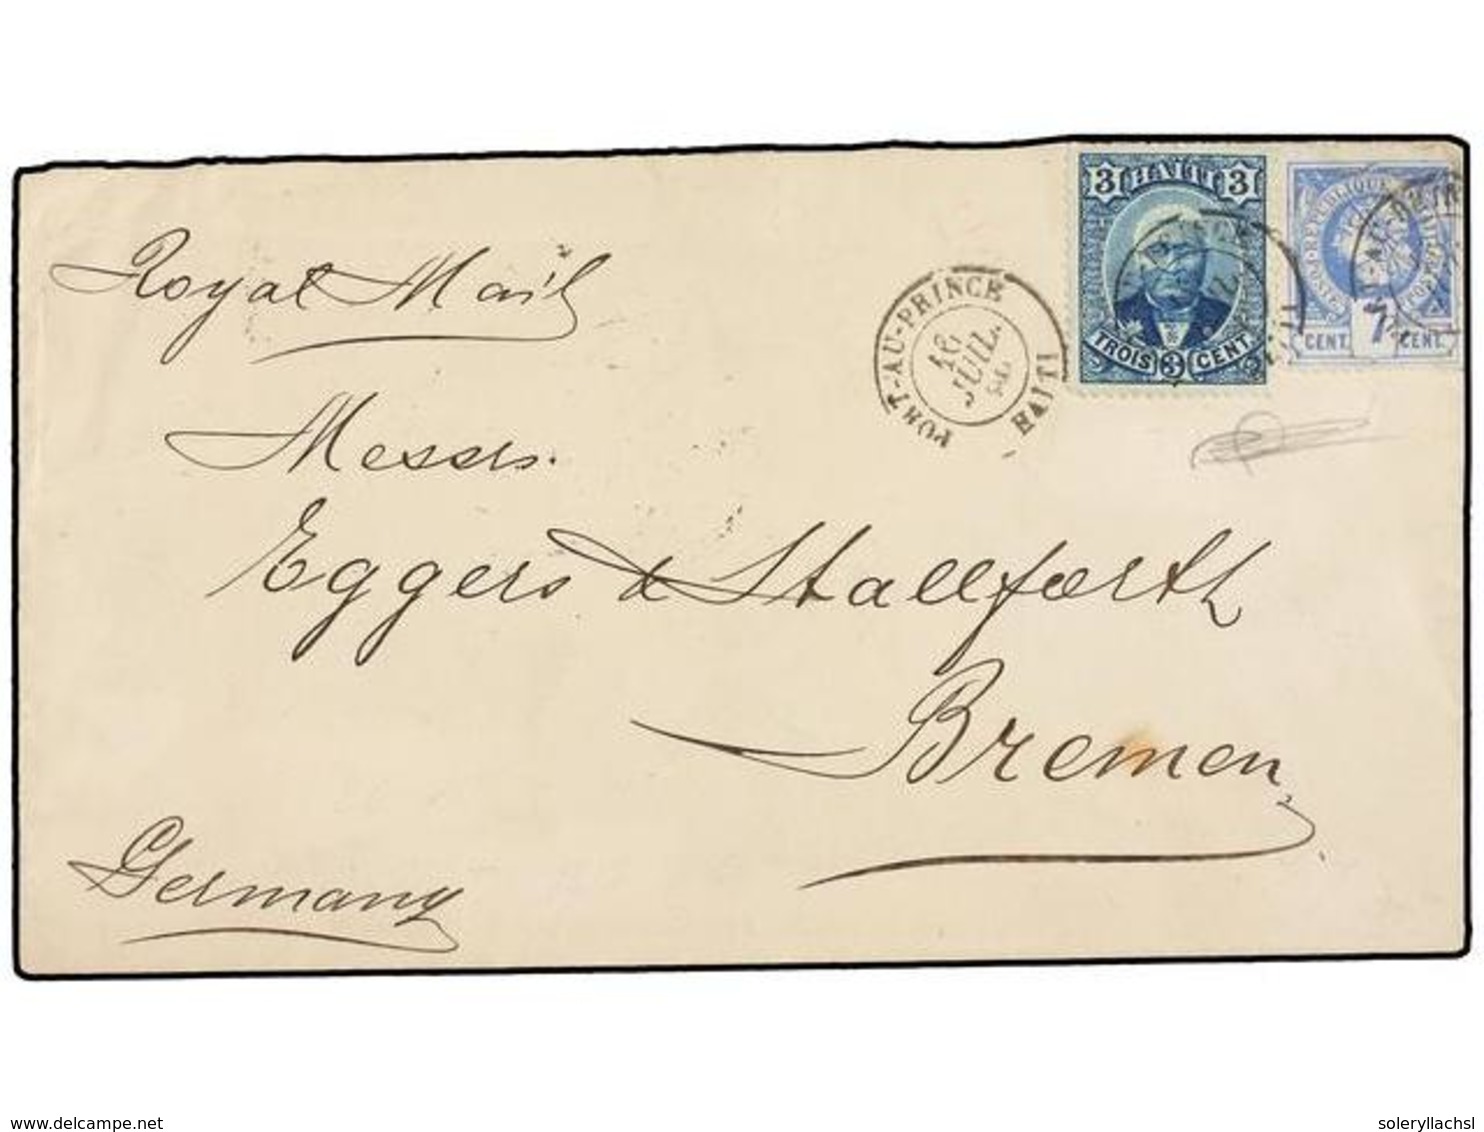 Royal Mail
3 HAITI 3
TROIS 3 CENT
RÉPUBLIQUE
7
CENT. CENT.
PORT-AU-PRINCE
16
JUIL.
HAITI
Messrs.
Eggers & Stallforth
Bremen
Germany
www.delcampe.net
soleryllachsl